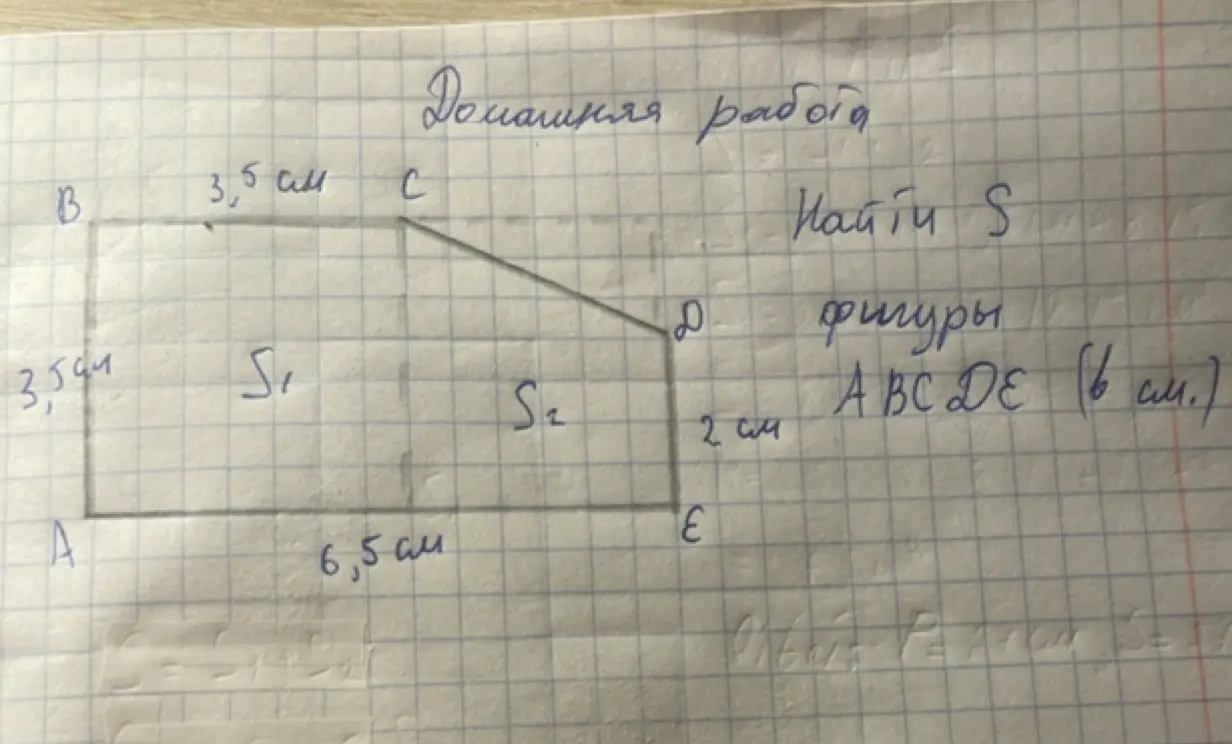 Домашняя работа
B 3,5 см C
Найти S
D
фигуры
3,5 см S₁ S₂
ABCDE (в см.)
2 см
A 6,5 см E